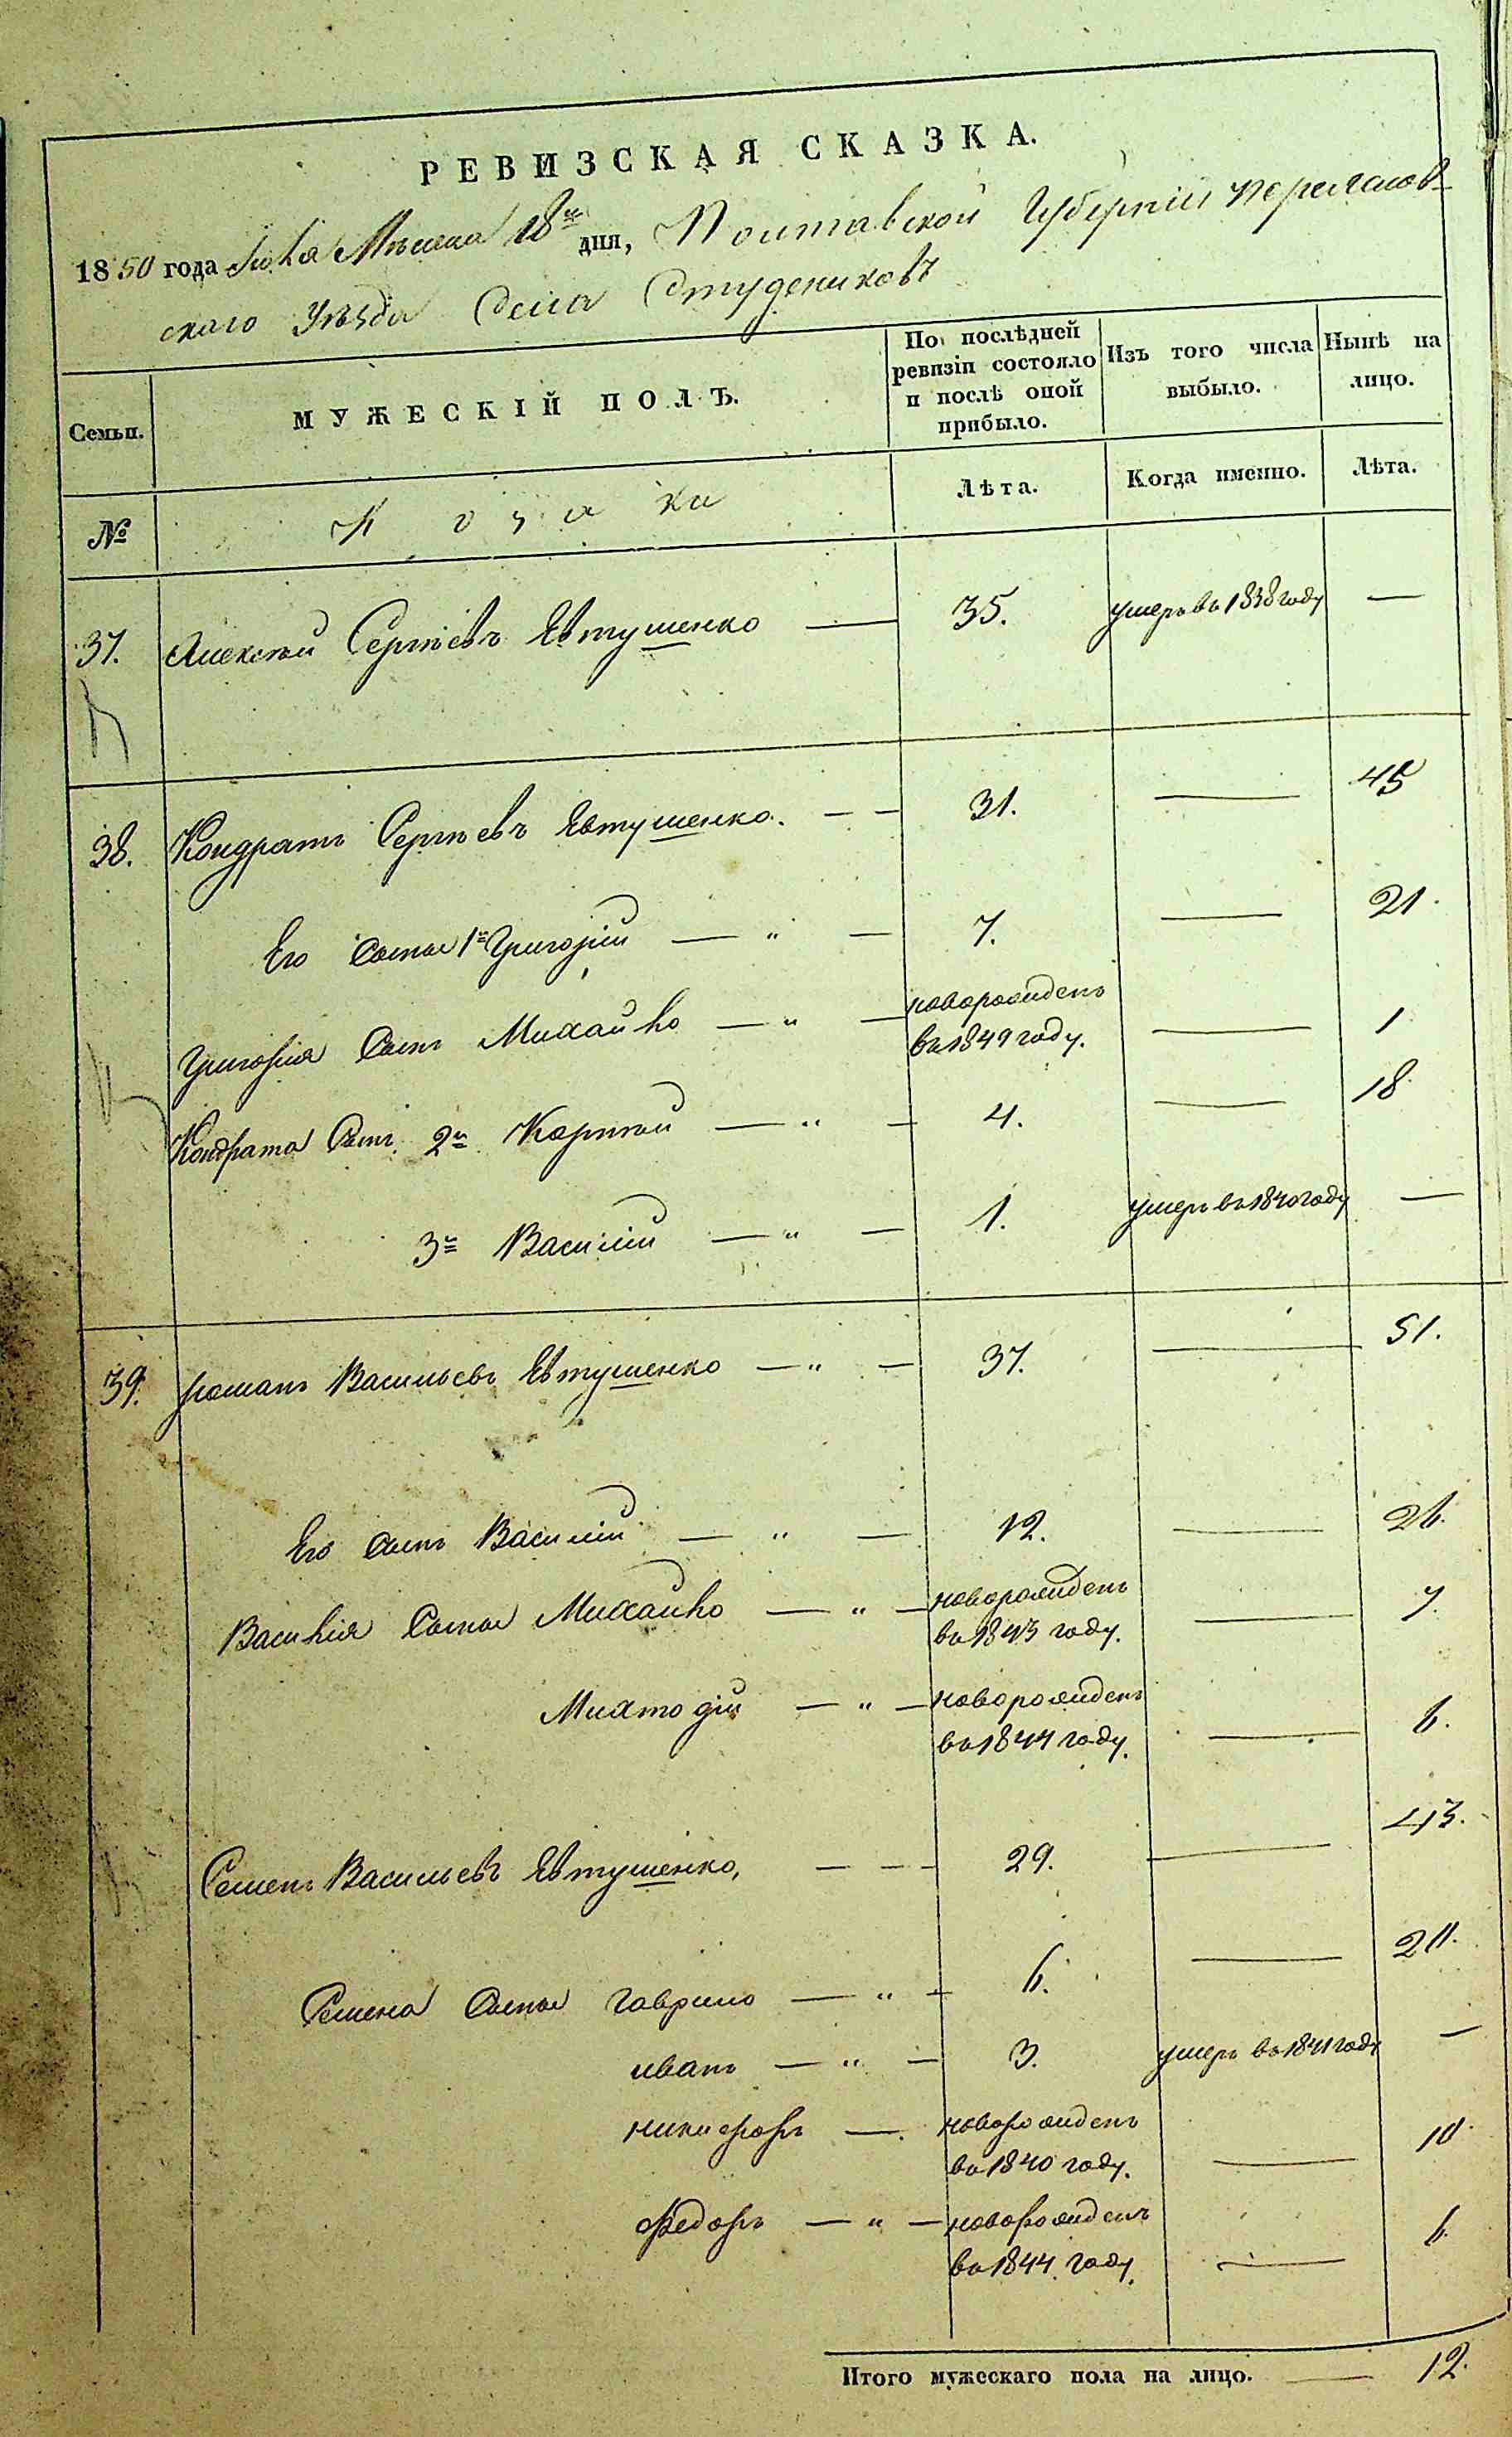 РЕВИЗСКАЯ СКАЗКА.
1850 года Июля Месяца 18го дня, Полтавской Губерніи Переяслов-
скаго Уѣзда Села Студениковъ
Семьи.
МУЖЕСКІЙ ПОЛЪ.
По послѣдней ревизіи состояло и послѣ оной прибыло.
Изъ того числа выбыло.
Нынѣ на лицо.
№
Козаки
Лѣта.
Когда именно.
Лѣта.
37. Алексѣй Сергѣевъ Евтушенко — 35. умеръ въ 1838 году —
38. Кондратъ Сергѣевъ Евтушенко. — — 31. — 45
Его Сыны 1й Григорій — " — 7. — 21.
Григорія Сынъ Михайло — " — новорожденъ
въ 1849 году. — 1
Кондрата Сынъ 2й Кортѣй — " — 4. — 18
3й Василій — " — 1. умеръ въ 1840 году —
39. Романъ Васильевъ Евтушенко — " — 37. — 51.
Его сынъ Василій — " — 12. — 26.
Василія Сыны Михайло — " — новорожденъ
въ 1843 году. — 7.
Михтодій — " — новорожденъ
въ 1844 году. — 6.
Семенъ Васильевъ Евтушенко, — — — 29. — 43.
Семена Сыны Гаврило — " — 6. — 20.
иванъ — " — 3. умеръ въ 1841 году —
никифоръ — новорожденъ
въ 1840 году. — 10.
Федоръ — " — новорожденъ
въ 1844 году. — 6.
Итого мужескаго пола на лицо. — 12.